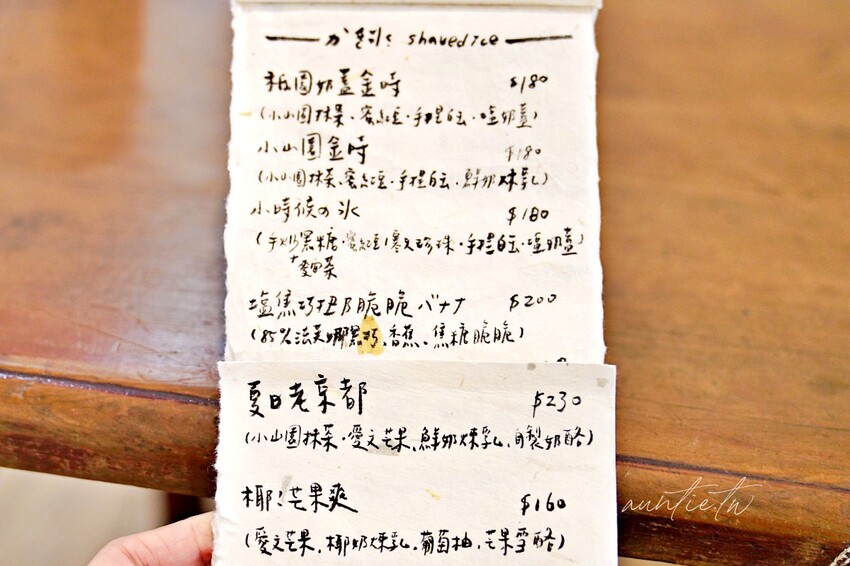 かき氷 shaved ice
祇園奶蓋金時 $180
(小山園抹茶、蜜紅豆・手捏白玉・塩奶蓋)
小山園金時 $180
(小山園抹茶、蜜紅豆・手捏白玉・鮮奶煉乳)
小時候の氷 $180
(手炒黑糖・蜜紅豆・寒天珍珠・手捏白玉・塩奶蓋)
塩焦巧扭乃脆脆バナナ $200
(85%法芙娜黑巧、香蕉、焦糖脆脆)
夏日老京都 $230
(小山園抹茶・愛文芒果、鮮奶煉乳、自製奶酪)
椰!芒果爽 $160
(愛文芒果、椰奶煉乳、葡萄柚、芒果雪酪)
auntie.tw